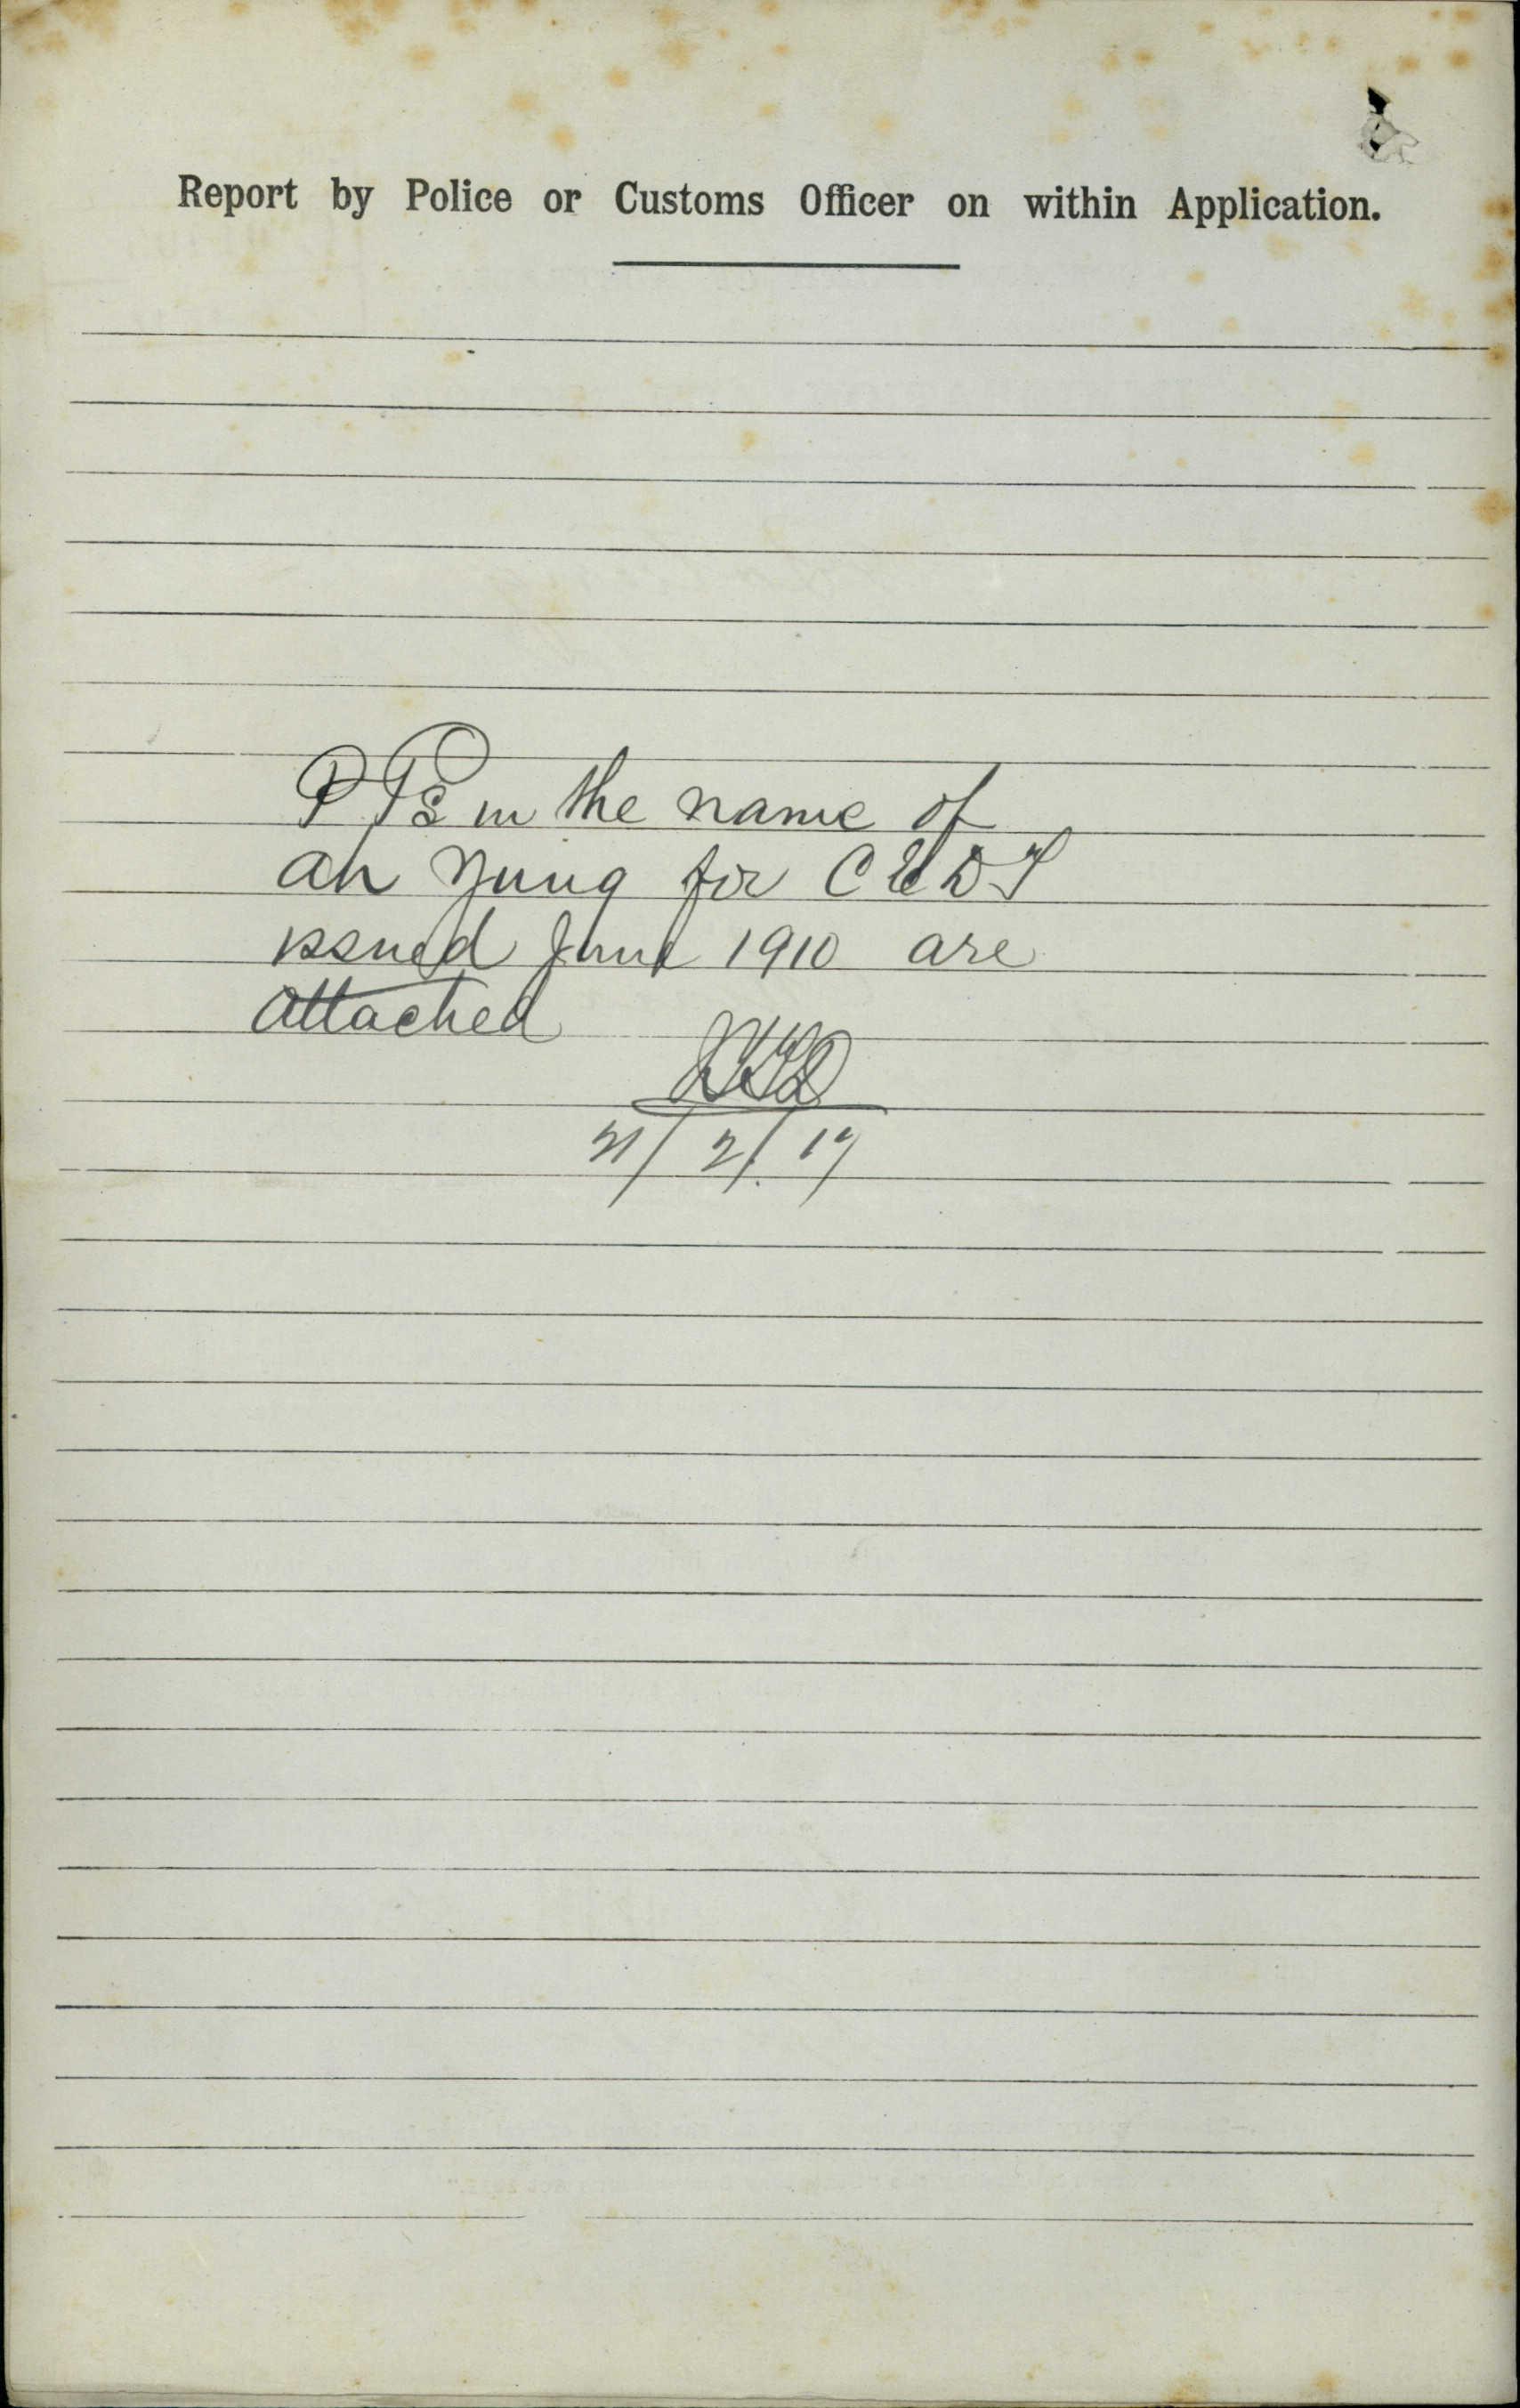 Report by Police or Customs Officer on within Application.
P Ps in the name of
Ah Yung for C E D T
issued June 1910 are
attached
21/2/17